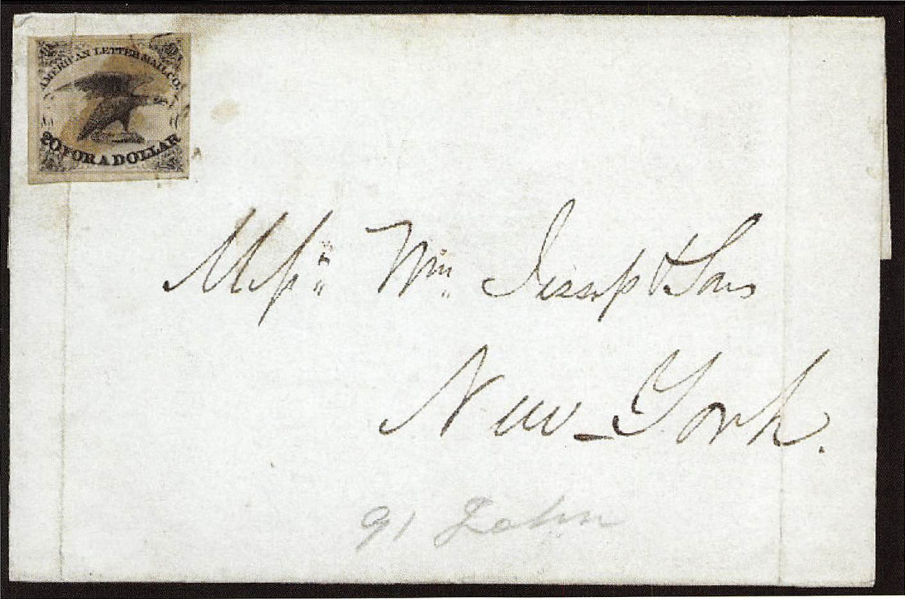 AMERICAN LETTER MAIL CO.
20 FOR A DOLLAR
Messrs Wm. Jessop & Sons
New-York.
91 John